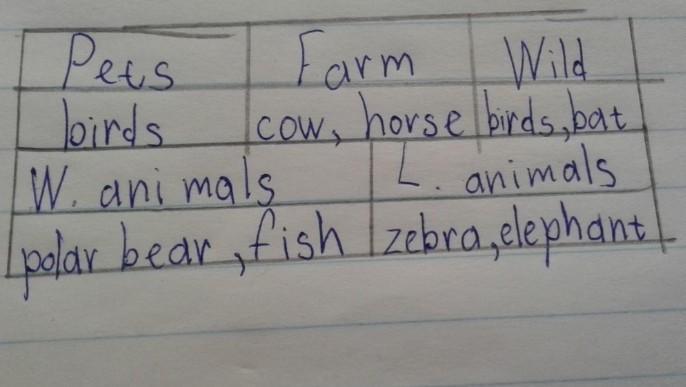 Pets Farm Wild
birds cow, horse birds, bat
W. animals L. animals
polar bear, fish zebra, elephant